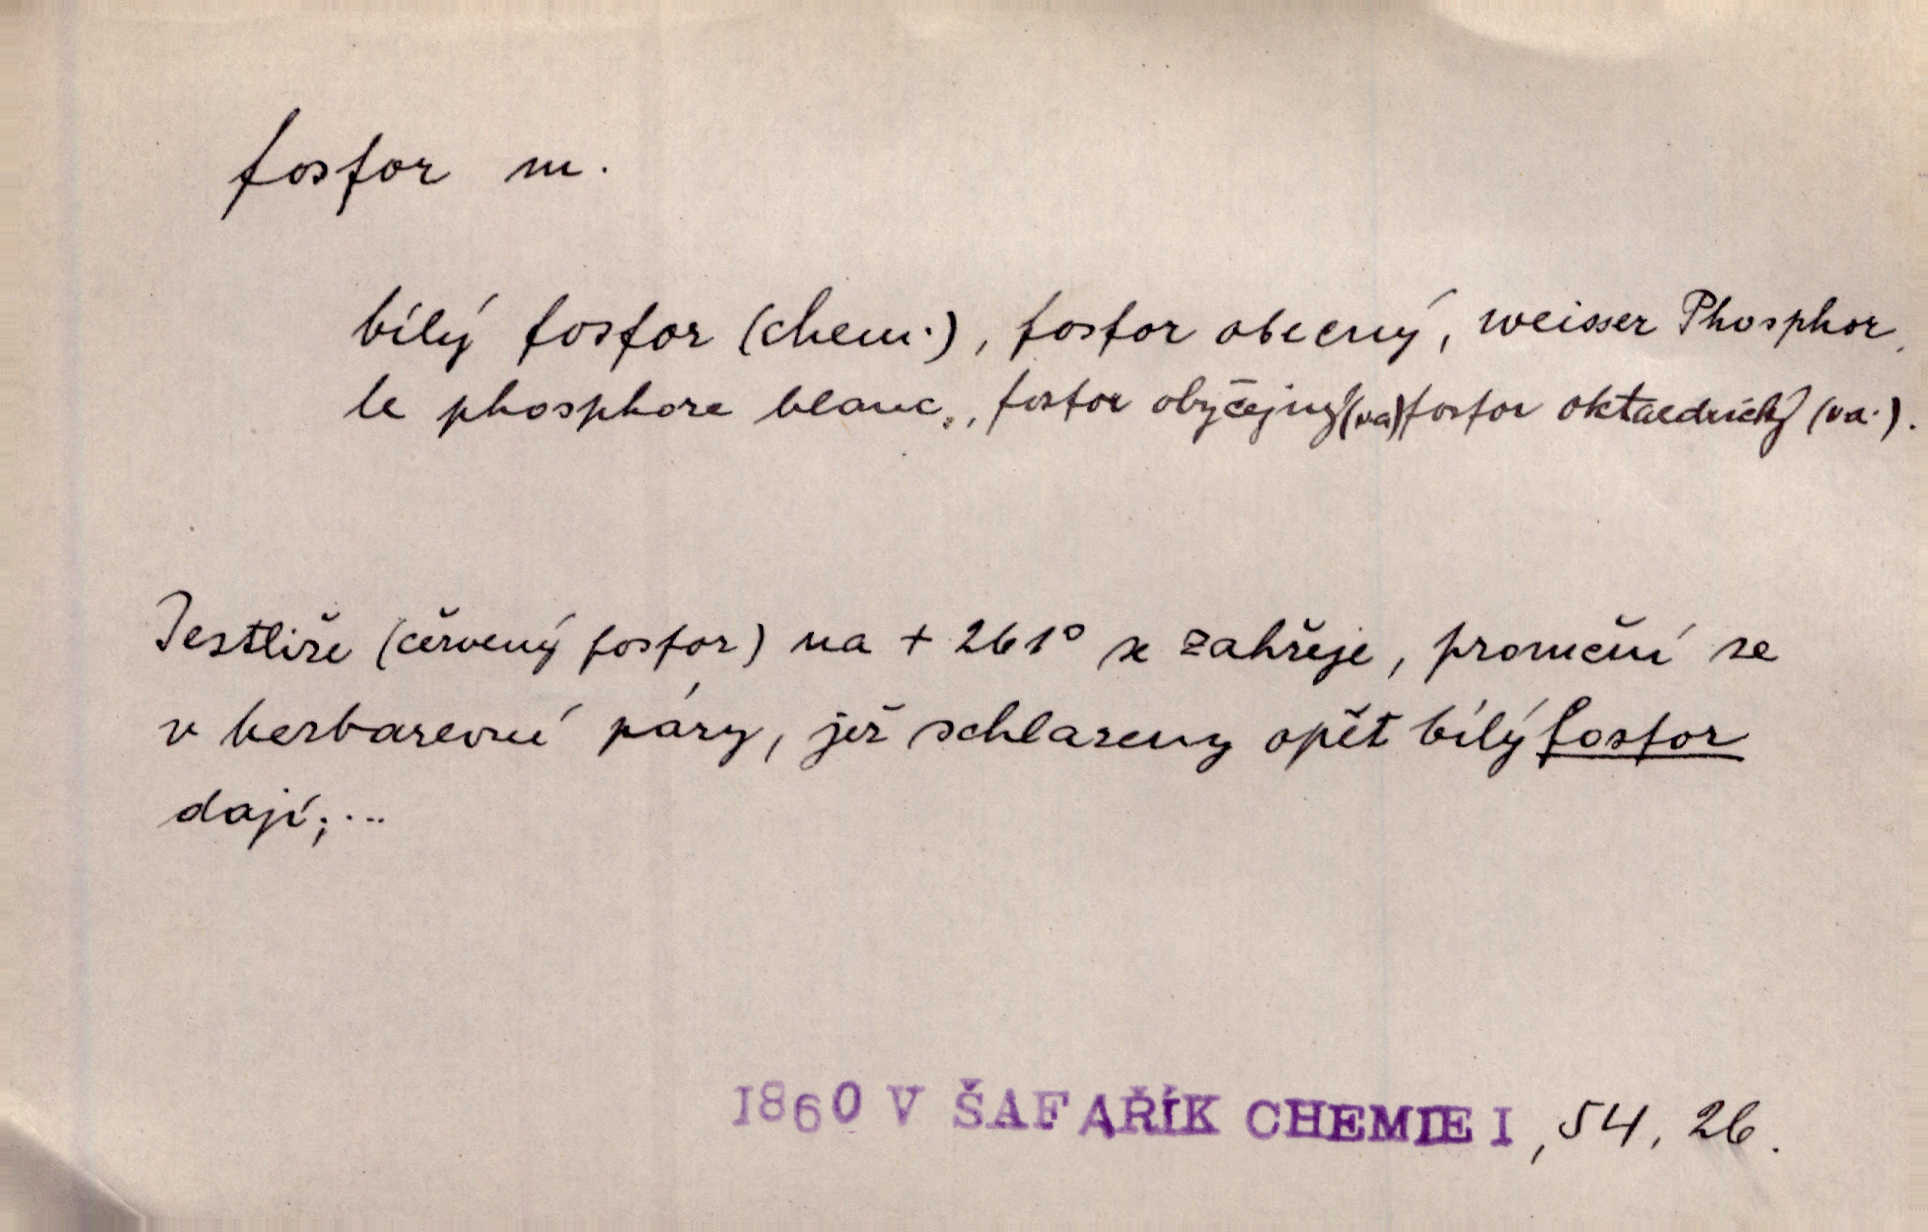 fosfor m.
bílý fosfor (chem.), fosfor obecný, weisser Phosphor,
le phosphore blanc., fosfor obyčejný (va) fosfor oktaedrický (va.).
Jestliže (červený fosfor) na + 261° se zahřeje, promění se
v bezbarevné páry, jež schlazeny opět bílý fosfor
dají;...
1860 V ŠAFAŘÍK CHEMIE I, 54, 26.